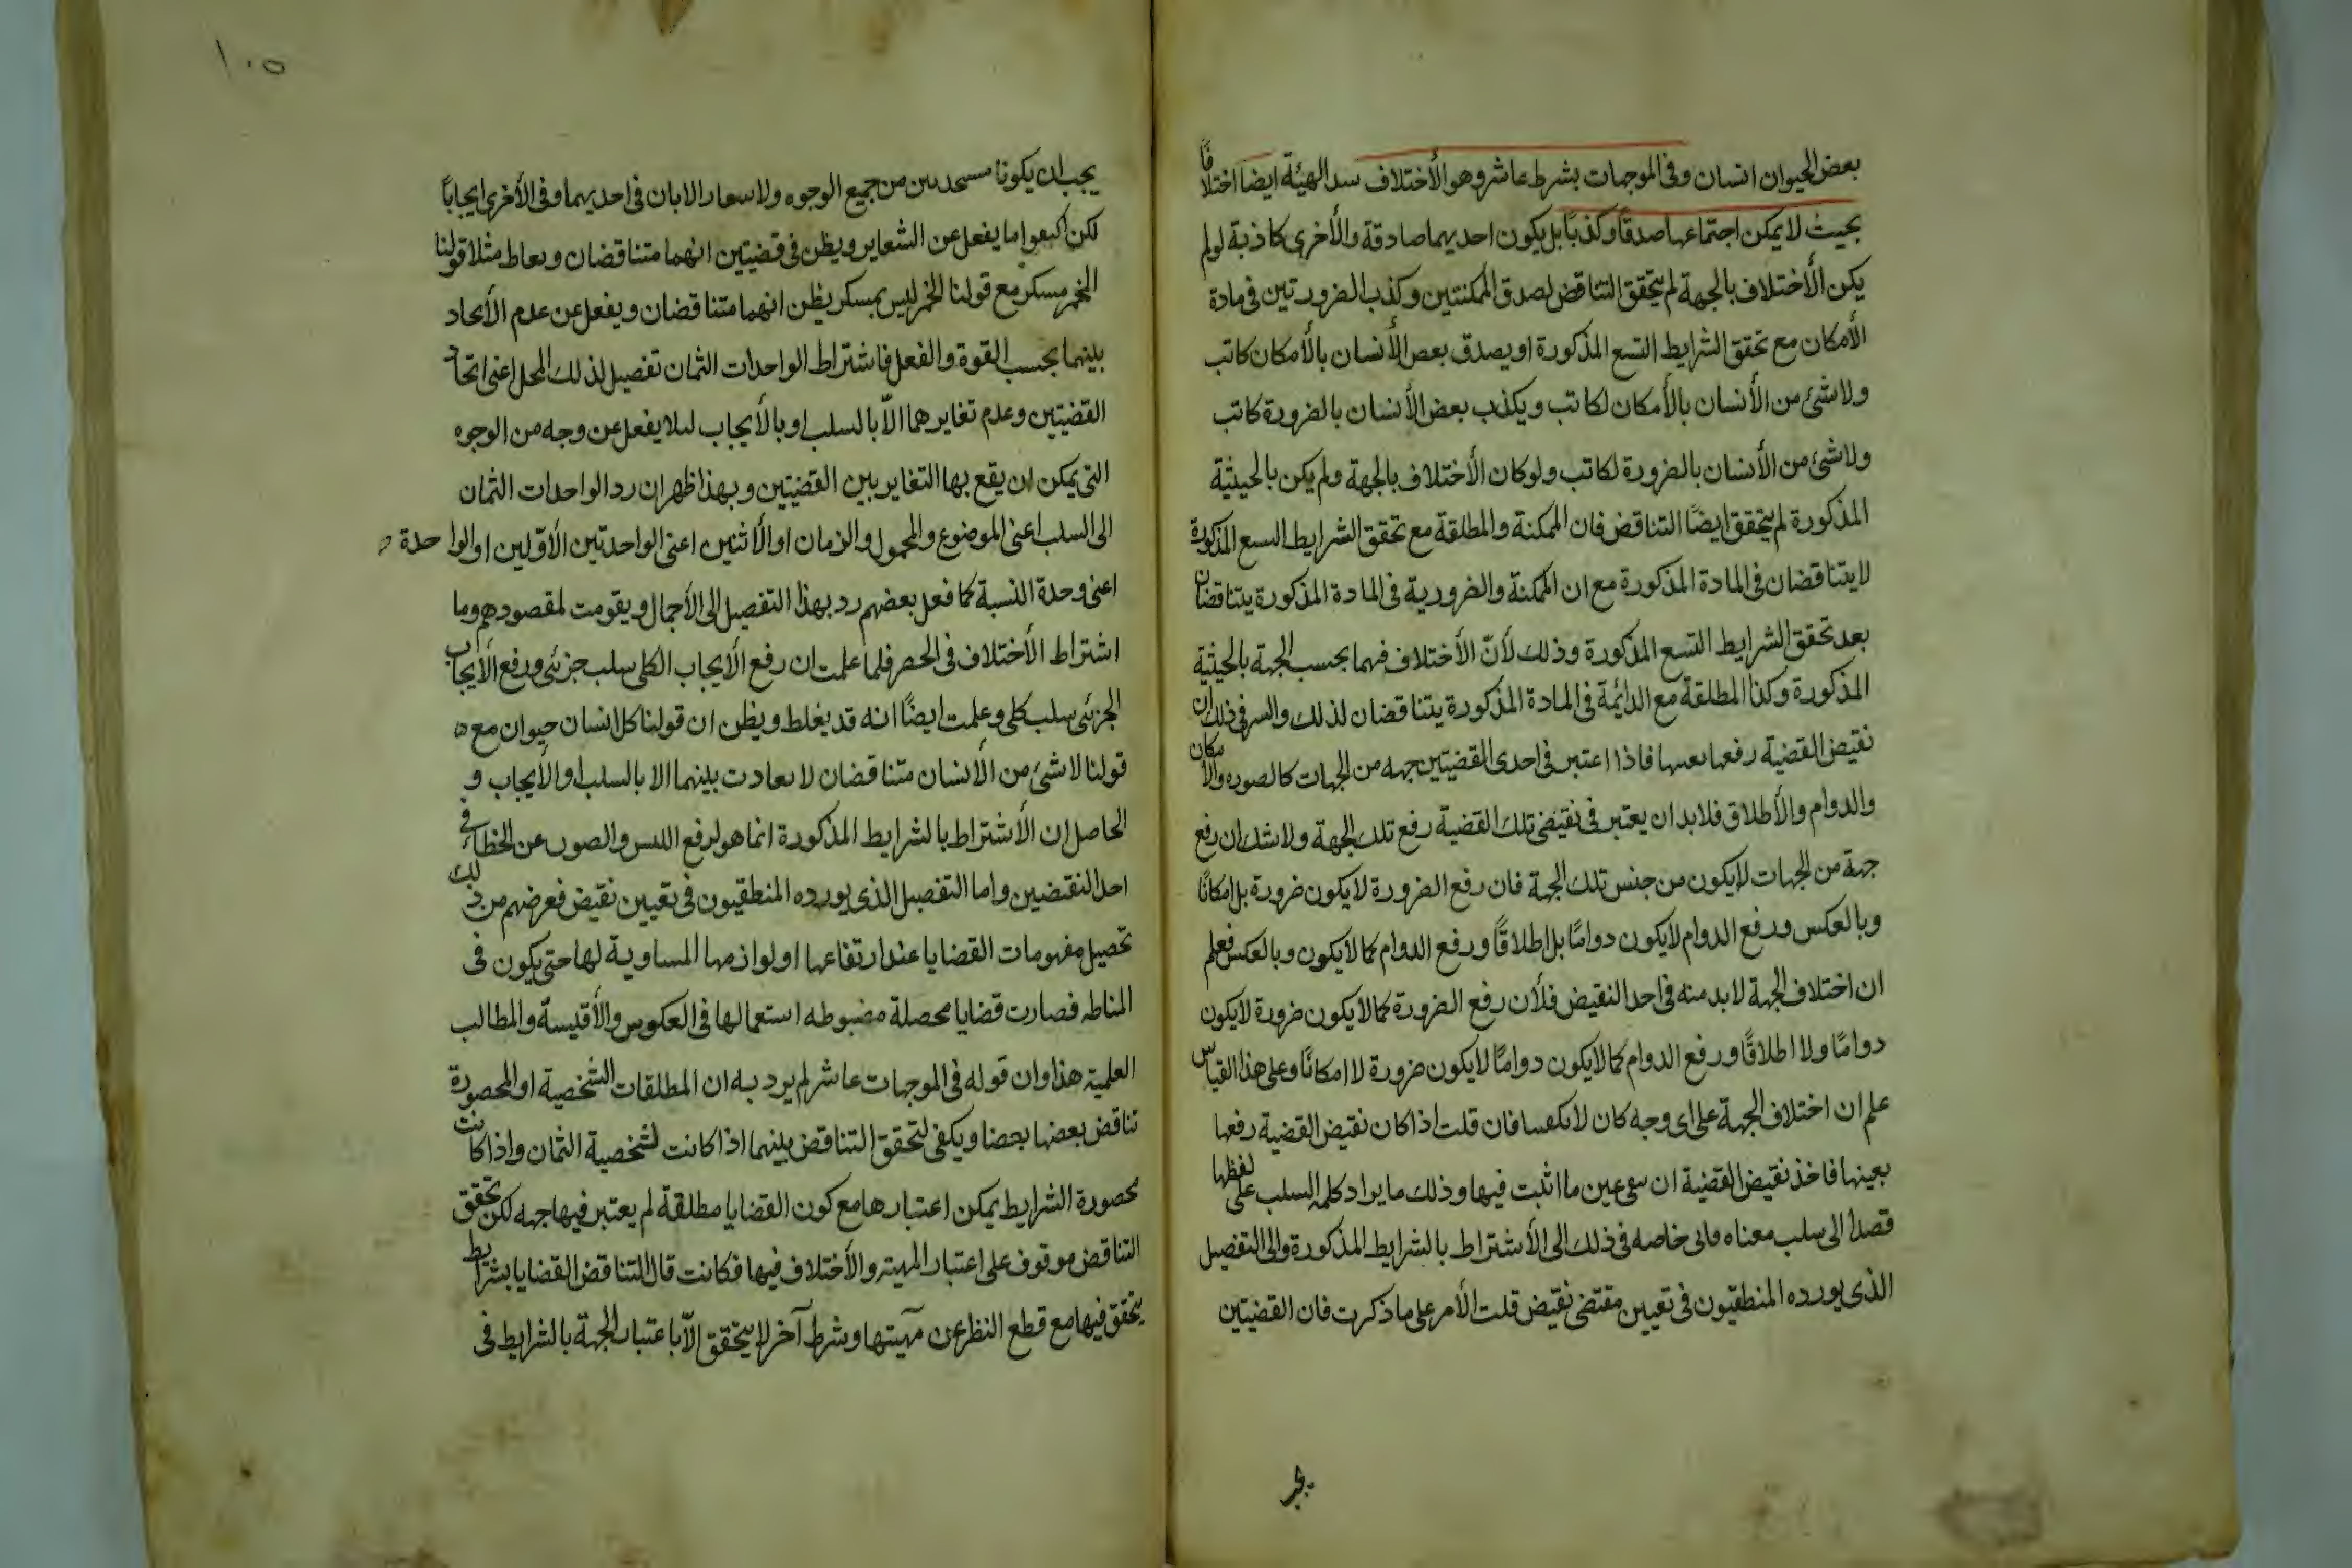 بعض الحيوان انسان وفى الموجهات بشرط عاشر وهو الأختلاف الهيئة ايضا اختلافًا
بحيث لا يمكن اجتماعها صدقًا وكذبًا بل يكون احديهما صادقة والأخرى كاذبة لو لم
يكن الأختلاف بالجهة لم يتحقق التناقض لصدق الممكنتين وكذب الضرورتين فى مادة
الأمكان مع تحقق الشرايط التسع المذكورة او يصدق بعض الأنسان بالأمكان كاتب
ولا شئ من الأنسان بالأمكان لكاتب ويكذب بعض الأنسان بالضرورة كاتب
ولا شئ من الأنسان بالضرورة لكاتب ولو كان الأختلاف بالجهة ولم يكن بالحيثية
المذكورة لم يتحقق ايضًا التناقض فان الممكنة والمطلقة مع تحقق الشرايط السع المذكورة
لا يتناقضان فى المادة المذكورة مع ان الممكنة والضرورية فى المادة المذكورة يتناقضان
بعد تحقق الشرايط التسع المذكورة وذلك لأنّ الأختلاف فهما بحسب الجهة بالحيثية
المذكورة وكذا المطلقة مع الدائمة فى المادة المذكورة يتناقضان لذلك والسر فى ذلك ان
نقيض القضية رفعها فاذا اعتبر فى احدى القضيتين جهه من الجهات كالصوره والأمكان
والدوام والأطلاق فلابد ان يعتبر فى نقيض تلك القضية رفع تلك الجهة ولا شك ان رفع
جهة من الجهات لا يكون من جنس تلك الجهة فان رفع الضرورة لا يكون ضرورة بل امكانًا
وبالعكس ورفع الدوام لا يكون دوامًا بل اطلاقًا ورفع الدوام كما لا يكون وبالعكس فعلم
ان اختلاف الجهة لابد منه فى احد النقيض فلأن رفع الضرورة كما لا يكون ضرورة لا يكون
دوامًا ولا اطلاقًا ورفع الدوام كما لا يكون دوامًا لا يكون ضرورة لا امكانًا وعلى هذا القياس
علم ان اختلاف الجهة على اى وجه كان فان قلت اذا كان نقيض القضية رفعها
بعينها فاخذ نقيض القضية ان عين ما اثبت فيها وذلك ما يراد كلمه السلب على لفظها
قصدا الى سلب معناه خاصه فى ذلك الى الأشتراط بالشرايط المذكورة والى التفصيل
الذى يورده المنطقيون فى تعيين مقتضى نقيض قلت الأمر على ما ذكرت فان القضيتين
يجب
١٠٥
يجب ان يكونا من جميع الوجوه ولا الا بان فى احديهما وفى الأخرى ايجابًا
لكن اما يفعل عن الشعاير ويظن فى قضيتين انهما متناقضان مثلا قولنا
الخمر مسكر مع قولنا الخمر ليس بمسكر يظن انهما متناقضان ويفعل عن عدم الأتحاد
بينهما بحسب القوة والفعل فاشتراط الواحدات الثمان تفصيل لذلك المحل اعنى اتحا
القضيتين وعدم تغايرهما الّا بالسلب او بالأيجاب لىلا يفعل عن وجه من الوجوه
التى يمكن ان يقع بها التغاير بين القضيتين وبهذا ظهر ان رد الواحدات الثمان
الى السلب اعنى الموضوع والمحمول والزمان او الأثنين اعنى الواحدتين الأوّلين او الواحدة
اعنى وحدة النسبة كما فعل بعضهم رد بهذا التفصيل الى الأجمال ويقومت لمقصودهم وما
اشتراط الأختلاف فى الحصر فلما علمت ان رفع الأيجاب الكلى سلب جزئى ورفع الأيجاب
الجزئى سلب كلى وعلمت ايضًا انه قد يغلط ويظن ان قولنا كل انسان حيوان مع
قولنا لا شئ من الأنسان متناقضان لا بينهما الا بالسلب او الأيجاب و
الحاصل ان الأشتراط بالشرايط المذكورة انما هو لرفع اللبس والصون عن الخطاء فى
احد النقتضين واما التفصيل الذى يورده المنطقيون فى تعيين نقيض فعرضهم من ذلك
تحصيل مفهومات القضايا عند ارتفاعها او لوازمها المساوية لها حتى يكون فى
المناطه فصارت قضايا محصلة مضبوطه استعمالها فى العكوس والأقيسة والمطالب
العلمية هذا وان قوله فى الموجهات عاشر لم يرد به ان المطلقات الشخصية او المحصورة
تناقض بعضها بعضا ويكفى لتحقق التناقض بينهما اذا كانت لشخصية الثمان واذا كانت
محصورة الشرايط يمكن اعتبارها مع كون القضايا مطلقة لم يعتبر فيها جهه لكن تحقق
التناقض موقوف على اعتبار المهيته والأختلاف فيها فكانت قال التناقض القضايا بشرايط
يتحقق فيها مع قطع النظر عن مهيتها وبشرط آخر لا يتحقق الّا باعتبار الجهة بالشرايط فى